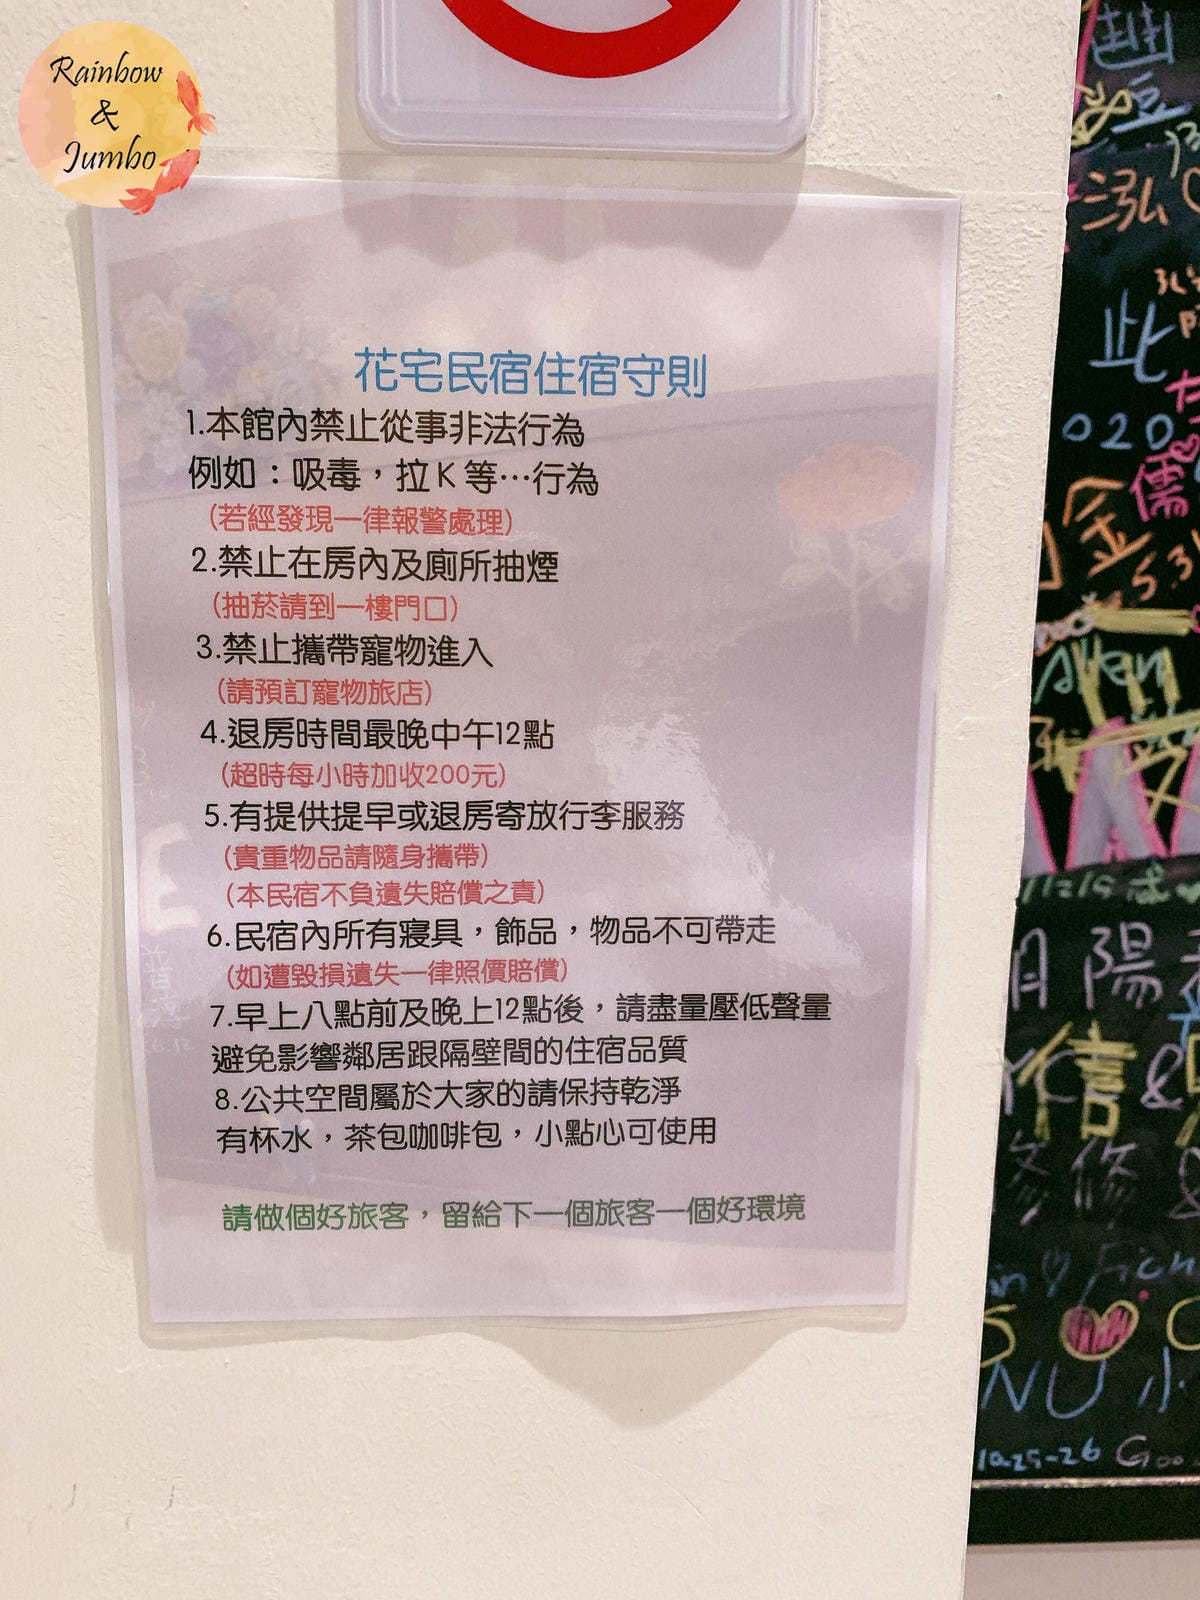 Rainbow
&
Jumbo
花宅民宿住宿守則
1.本館內禁止從事非法行為
例如：吸毒，拉K等…行為
(若經發現一律報警處理)
2.禁止在房內及廁所抽煙
(抽菸請到一樓門口)
3.禁止攜帶寵物進入
(請預訂寵物旅店)
4.退房時間最晚中午12點
(超時每小時加收200元)
5.有提供提早或退房寄放行李服務
(貴重物品請隨身攜帶)
(本民宿不負遺失賠償之責)
6.民宿內所有寢具，飾品，物品不可帶走
(如遭毀損遺失一律照價賠償)
7.早上八點前及晚上12點後，請盡量壓低聲量
避免影響鄰居跟隔壁間的住宿品質
8.公共空間屬於大家的請保持乾淨
有杯水，茶包咖啡包，小點心可使用
請做個好旅客，留給下一個旅客一個好環境
泓
此
020
儒
金
5.31
Allen
陽
信 &
修
NU 小
10.25-26